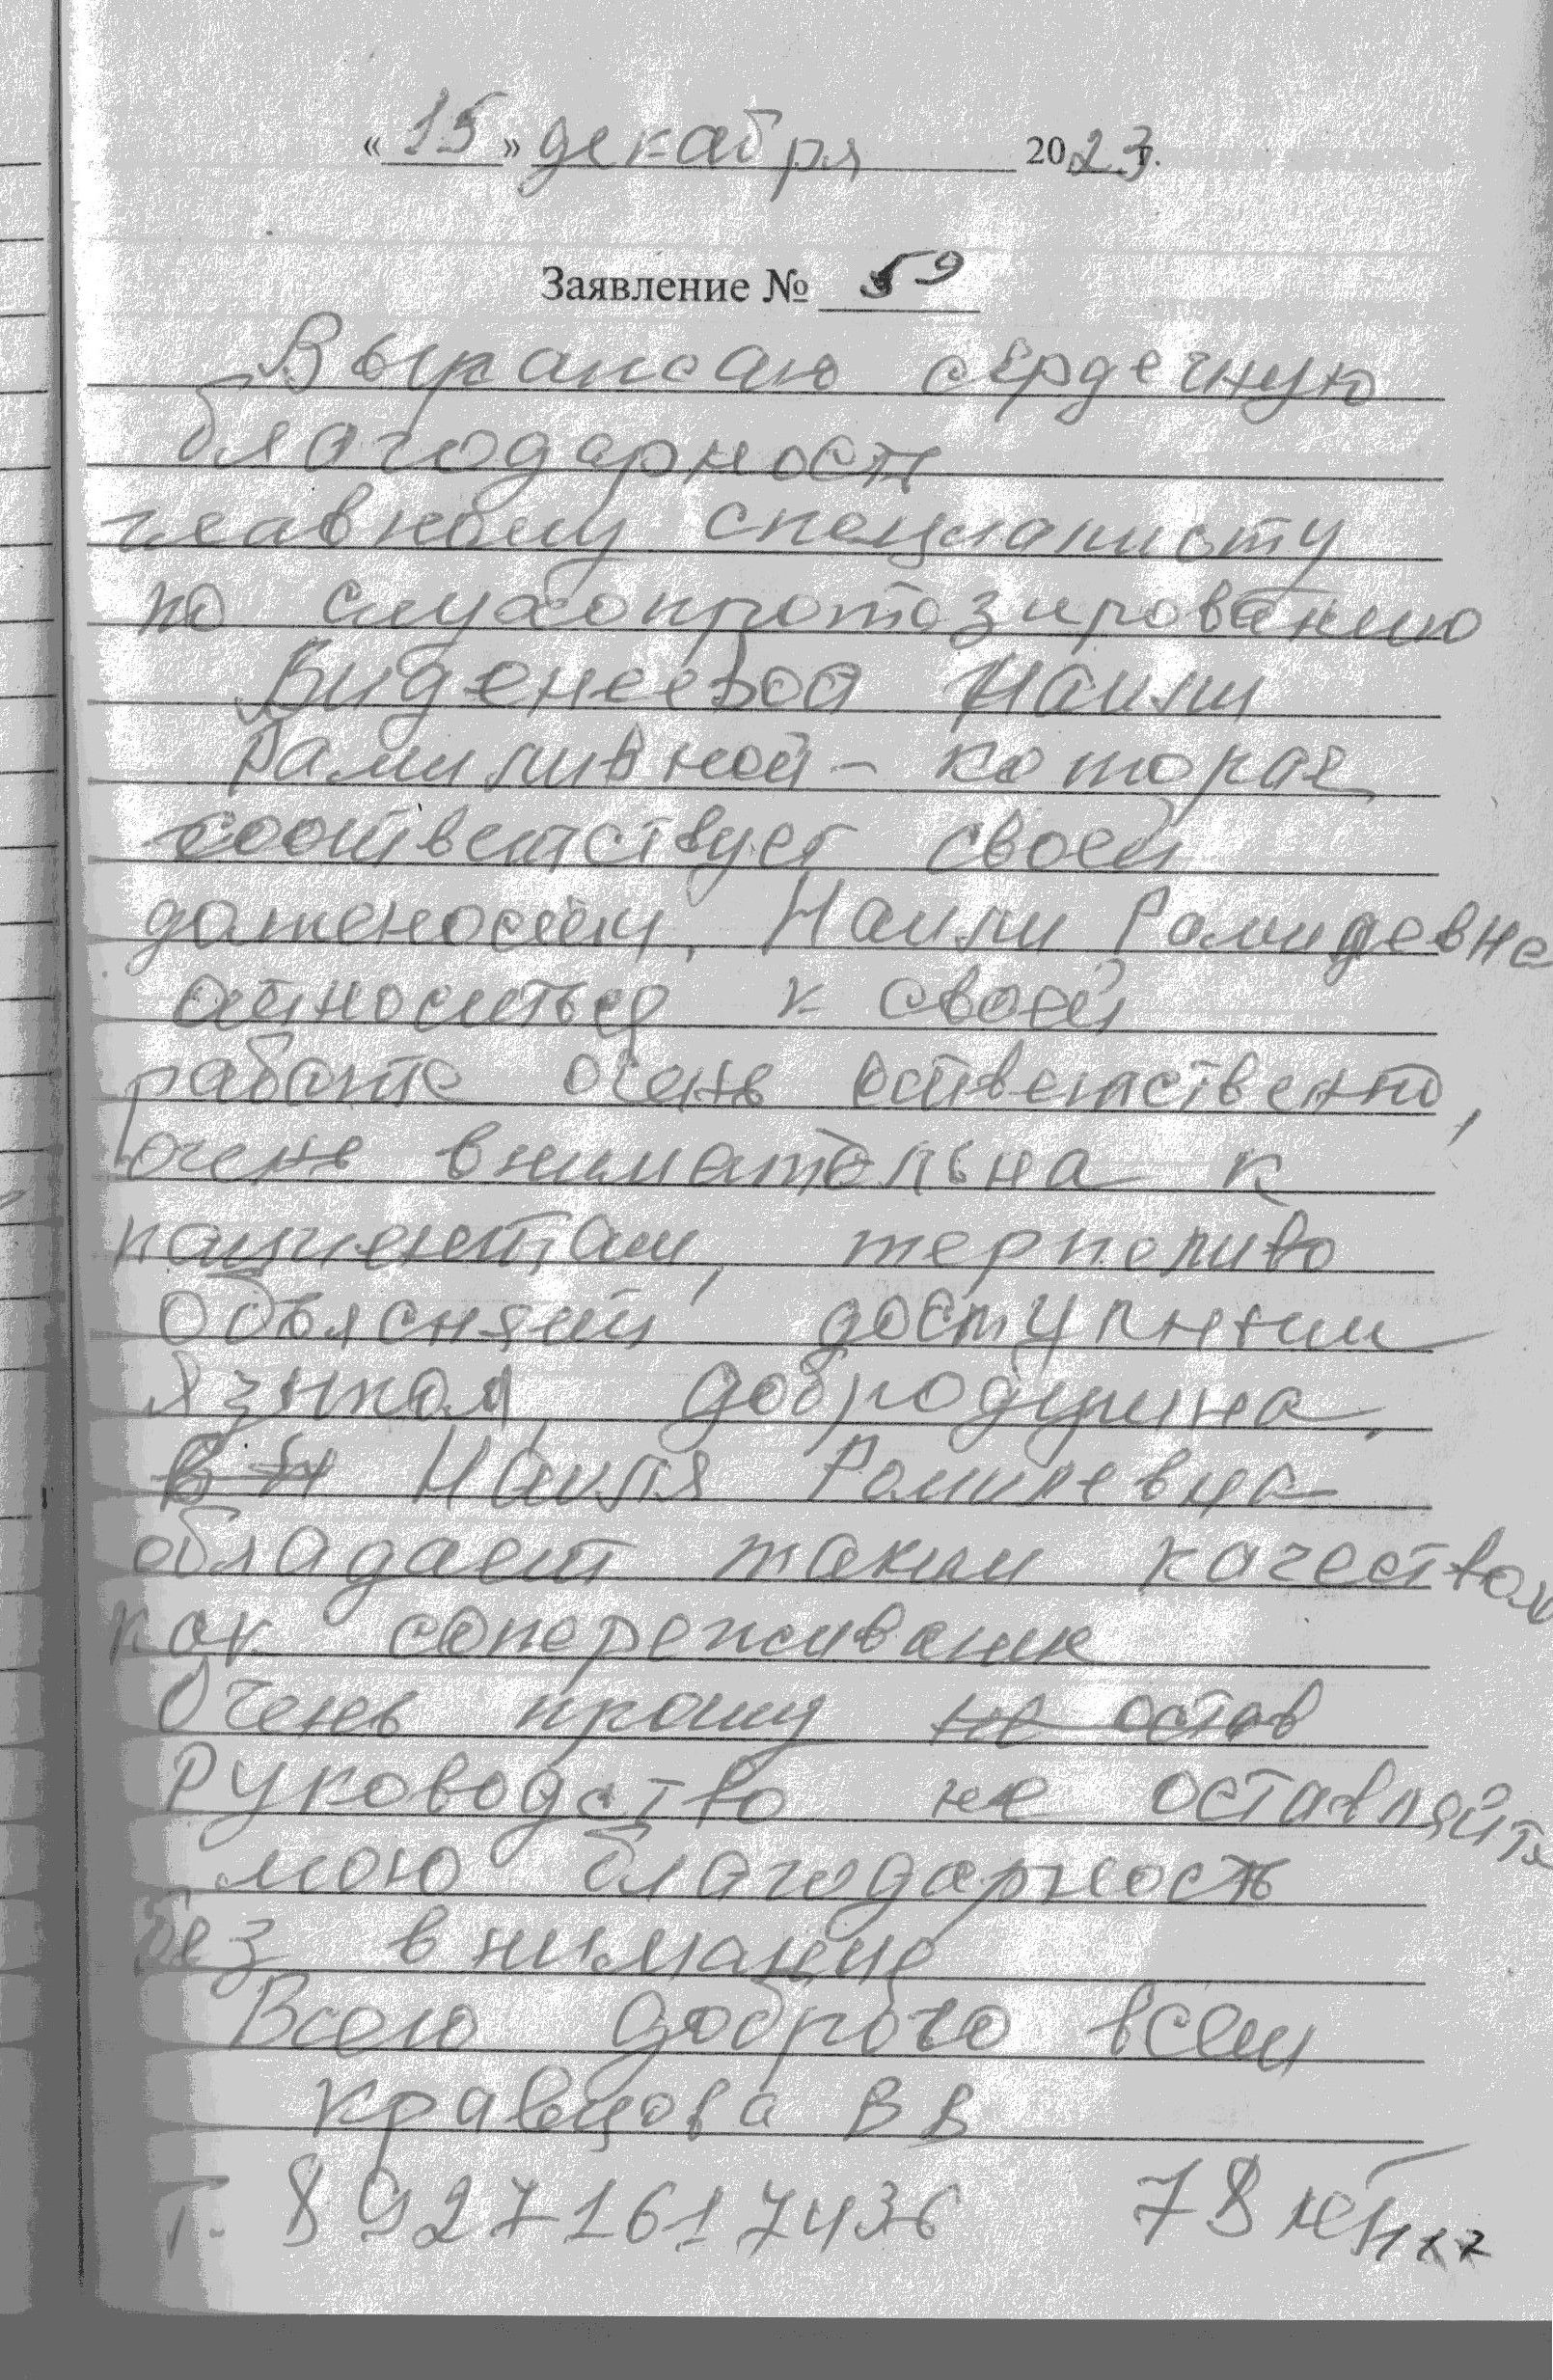 «15» декабря 2023 г.
Заявление № 59
Выражаю сердечную
благодарность
главному специалисту
по слухопротозированию
Виденеевой Наили
Рамиливной - которая
соответствует своей
должености. Наили Рамилевне
относиться к своей
работе очень ответственно,
очень внимательна к
пациентам, терпеливо
объясняет доступным
языком, добродушна.
В Н Наиля Рамилевна
обладает таким качеством
как сопереживание
Очень прошу не остав
Руководство не оставляйте
мою благодарность
без внимание
Всего доброго всем
Кравцова В В
т. 89271617436 78 лет